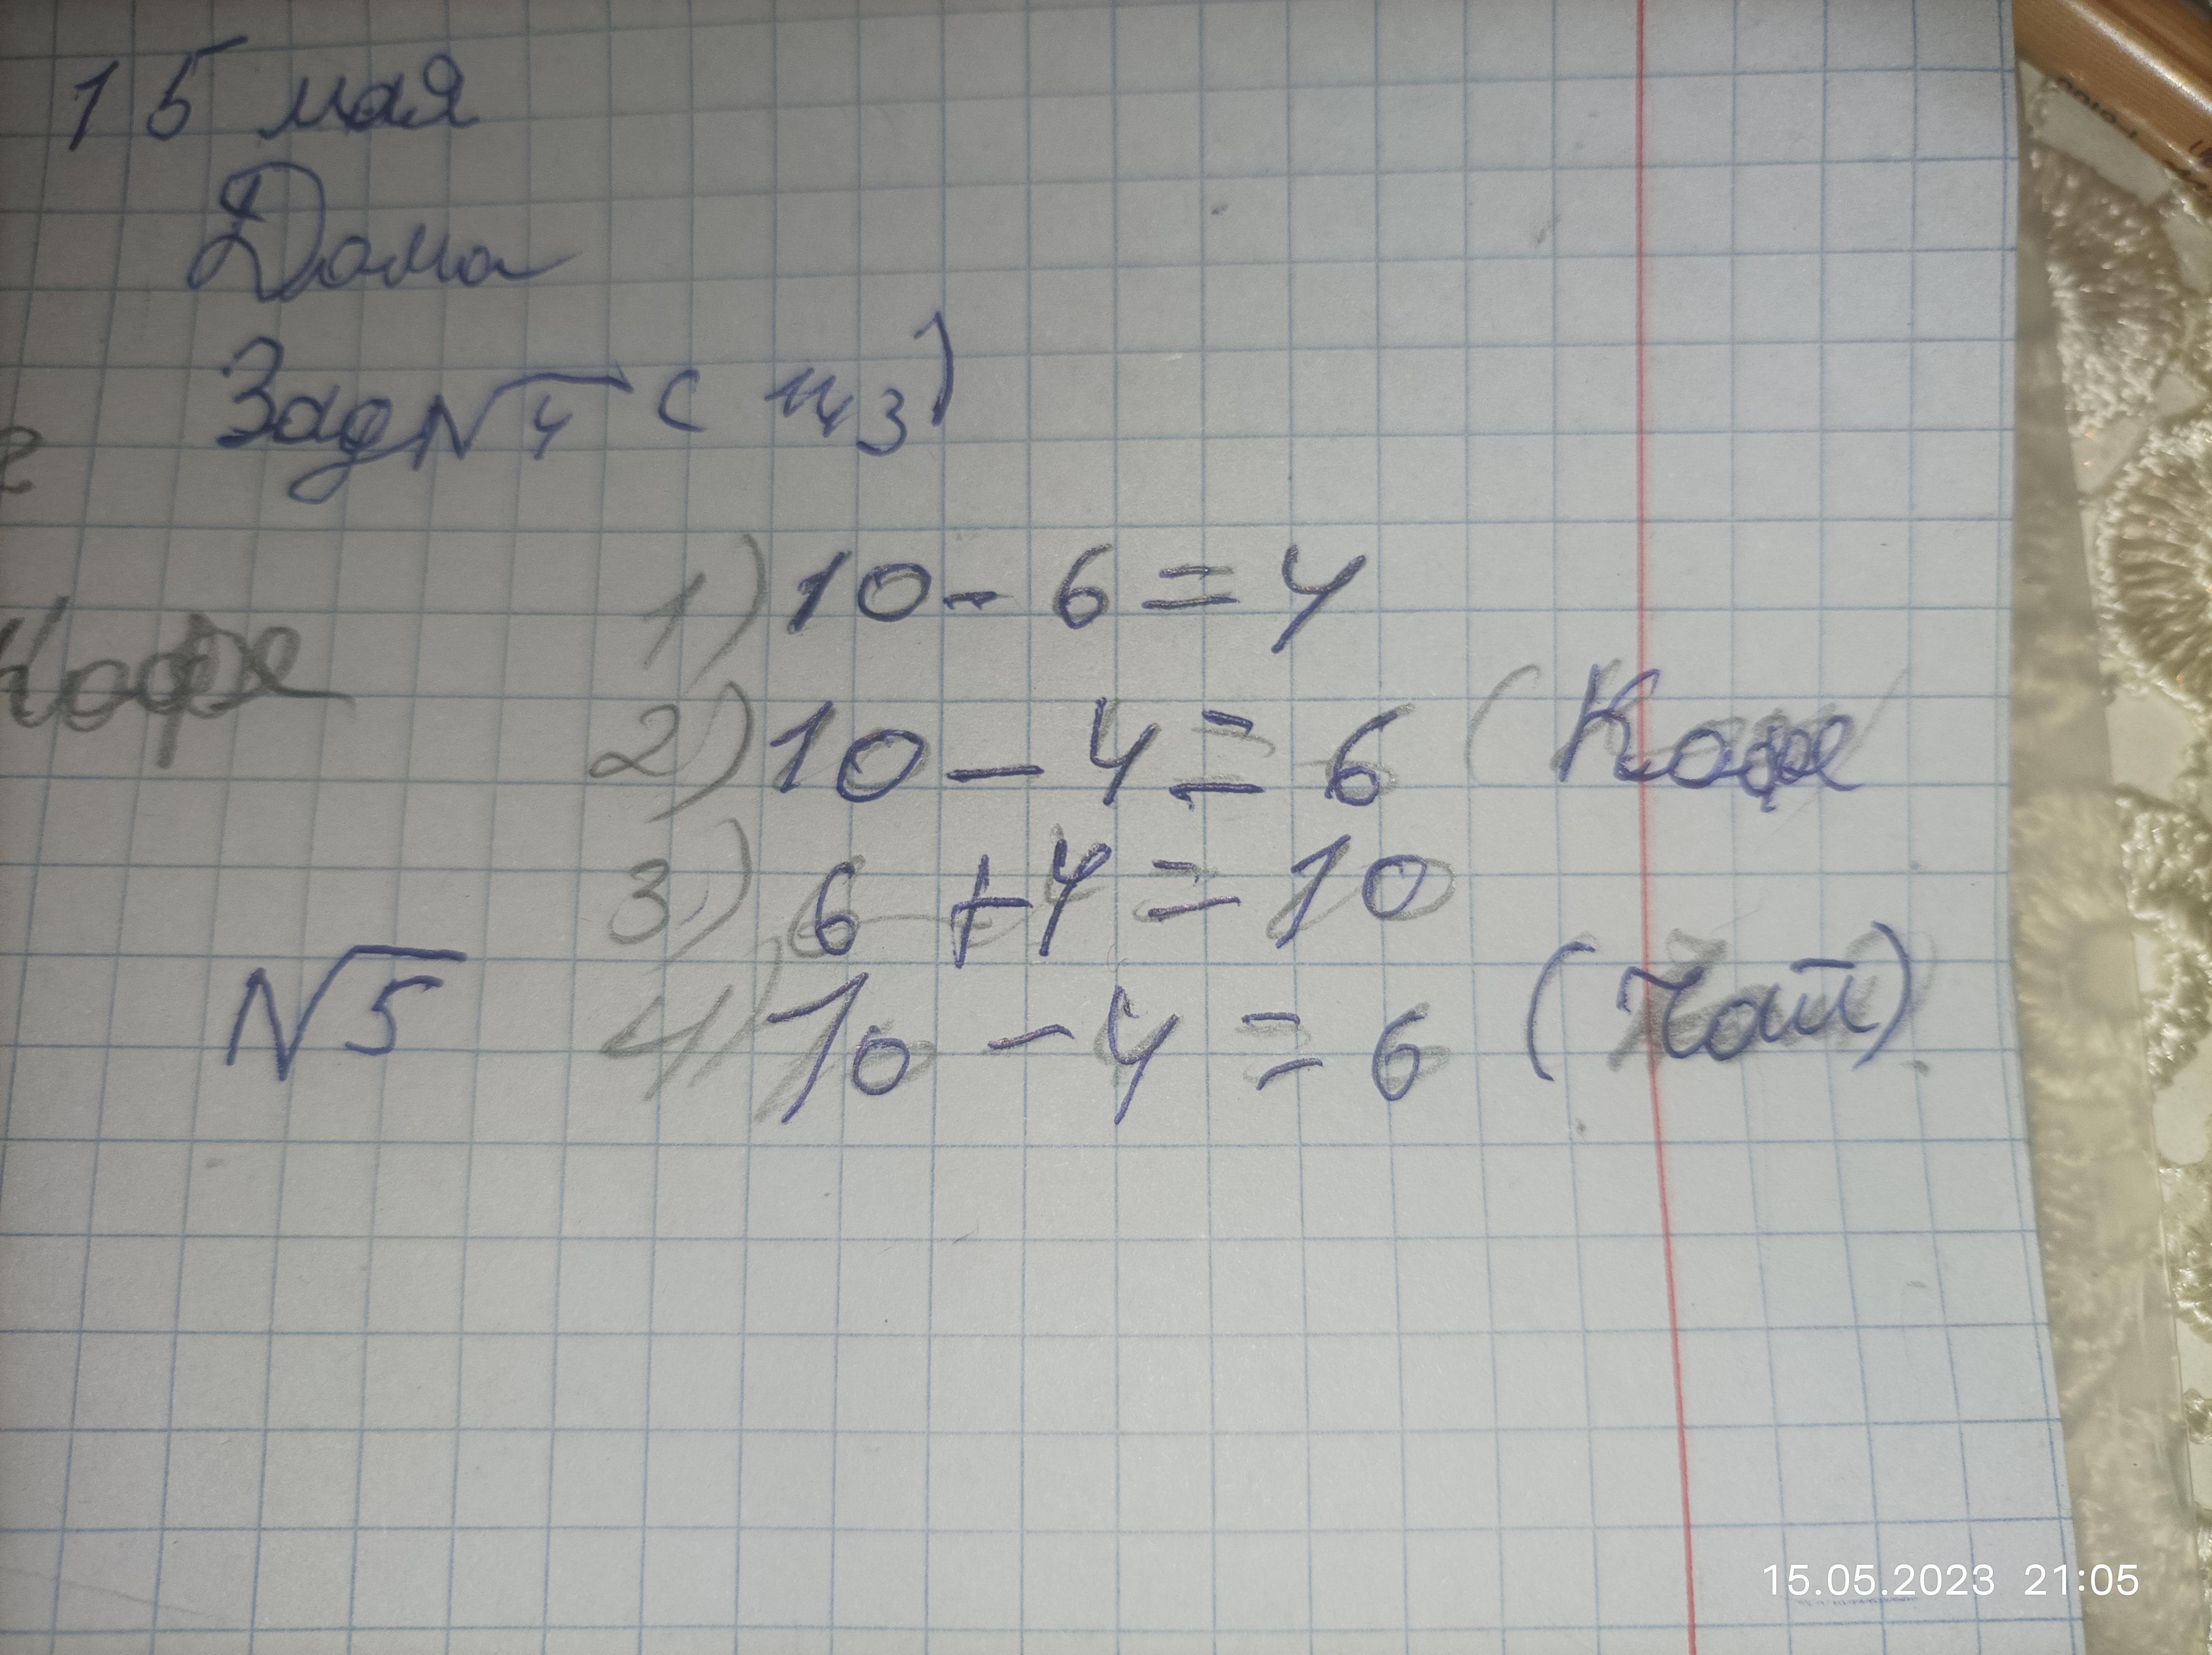 15 мая
Дома
Зад №4 (
1) 10 - 6 = 4
Кофе
2) 10 - 4 = 6 (Кофе
3) 6 + 4 = 10
№5
4) 10 - 4 = 6 (Чай)
15.05.2023 21:05